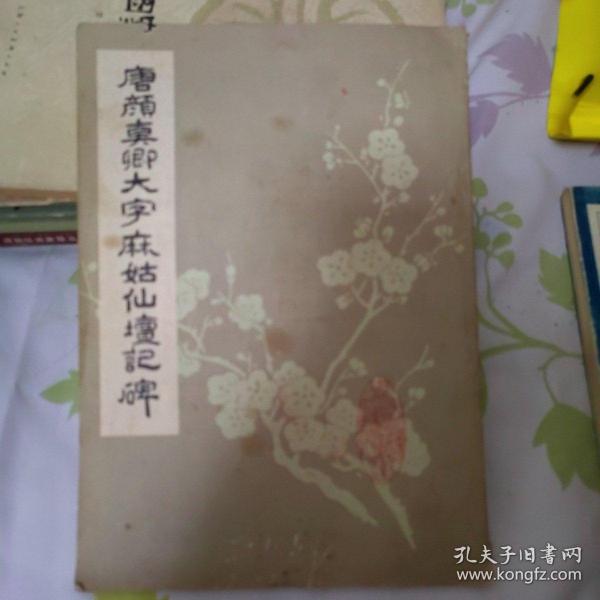 唐顔真卿大字麻姑仙壇記碑
孔夫子旧書网
www.kongfz.com